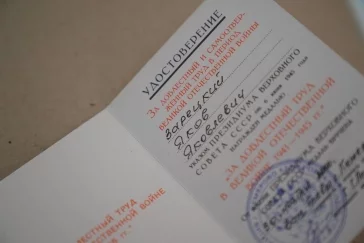 УДОСТОВЕРЕНИЕ
ЗА ДОБЛЕСТНЫЙ И САМООТВЕР-
ЖЕННЫЙ ТРУД В ПЕРИОД
ВЕЛИКОЙ ОТЕЧЕСТВЕННОЙ ВОЙНЫ
Зарецкий
Яков
Яковлевич
УКАЗОМ ПРЕЗИДИУМА ВЕРХОВНОГО
СОВЕТА СССР от 6 июня 1945 года
НАГРАЖДЕН МЕДАЛЬЮ
„ЗА ДОБЛЕСТНЫЙ ТРУД
В ВЕЛИКОЙ ОТЕЧЕСТВЕННОЙ
ВОЙНЕ 1941—1945 гг."
ЕСТНЫЙ ТРУД
СТВЕННОЙ ВОЙНЕ
гг."